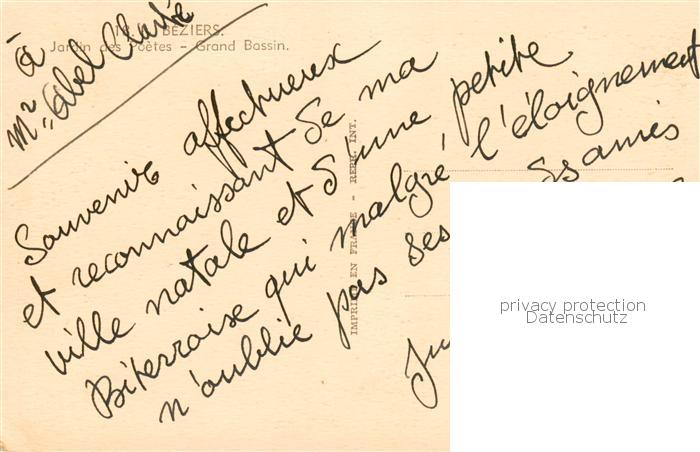 BEZIERS.
Jardin des Poètes - Grand Bassin.
à
Mr Abel
Souvenir affectueux
et reconnaissant de ma
ville natale et d'une petite
Biterroise qui malgré l'éloignement
n'oublie pas ses amis
IMPRIMÉ EN FRANCE - REPR. INT.
privacy protection
Datenschutz